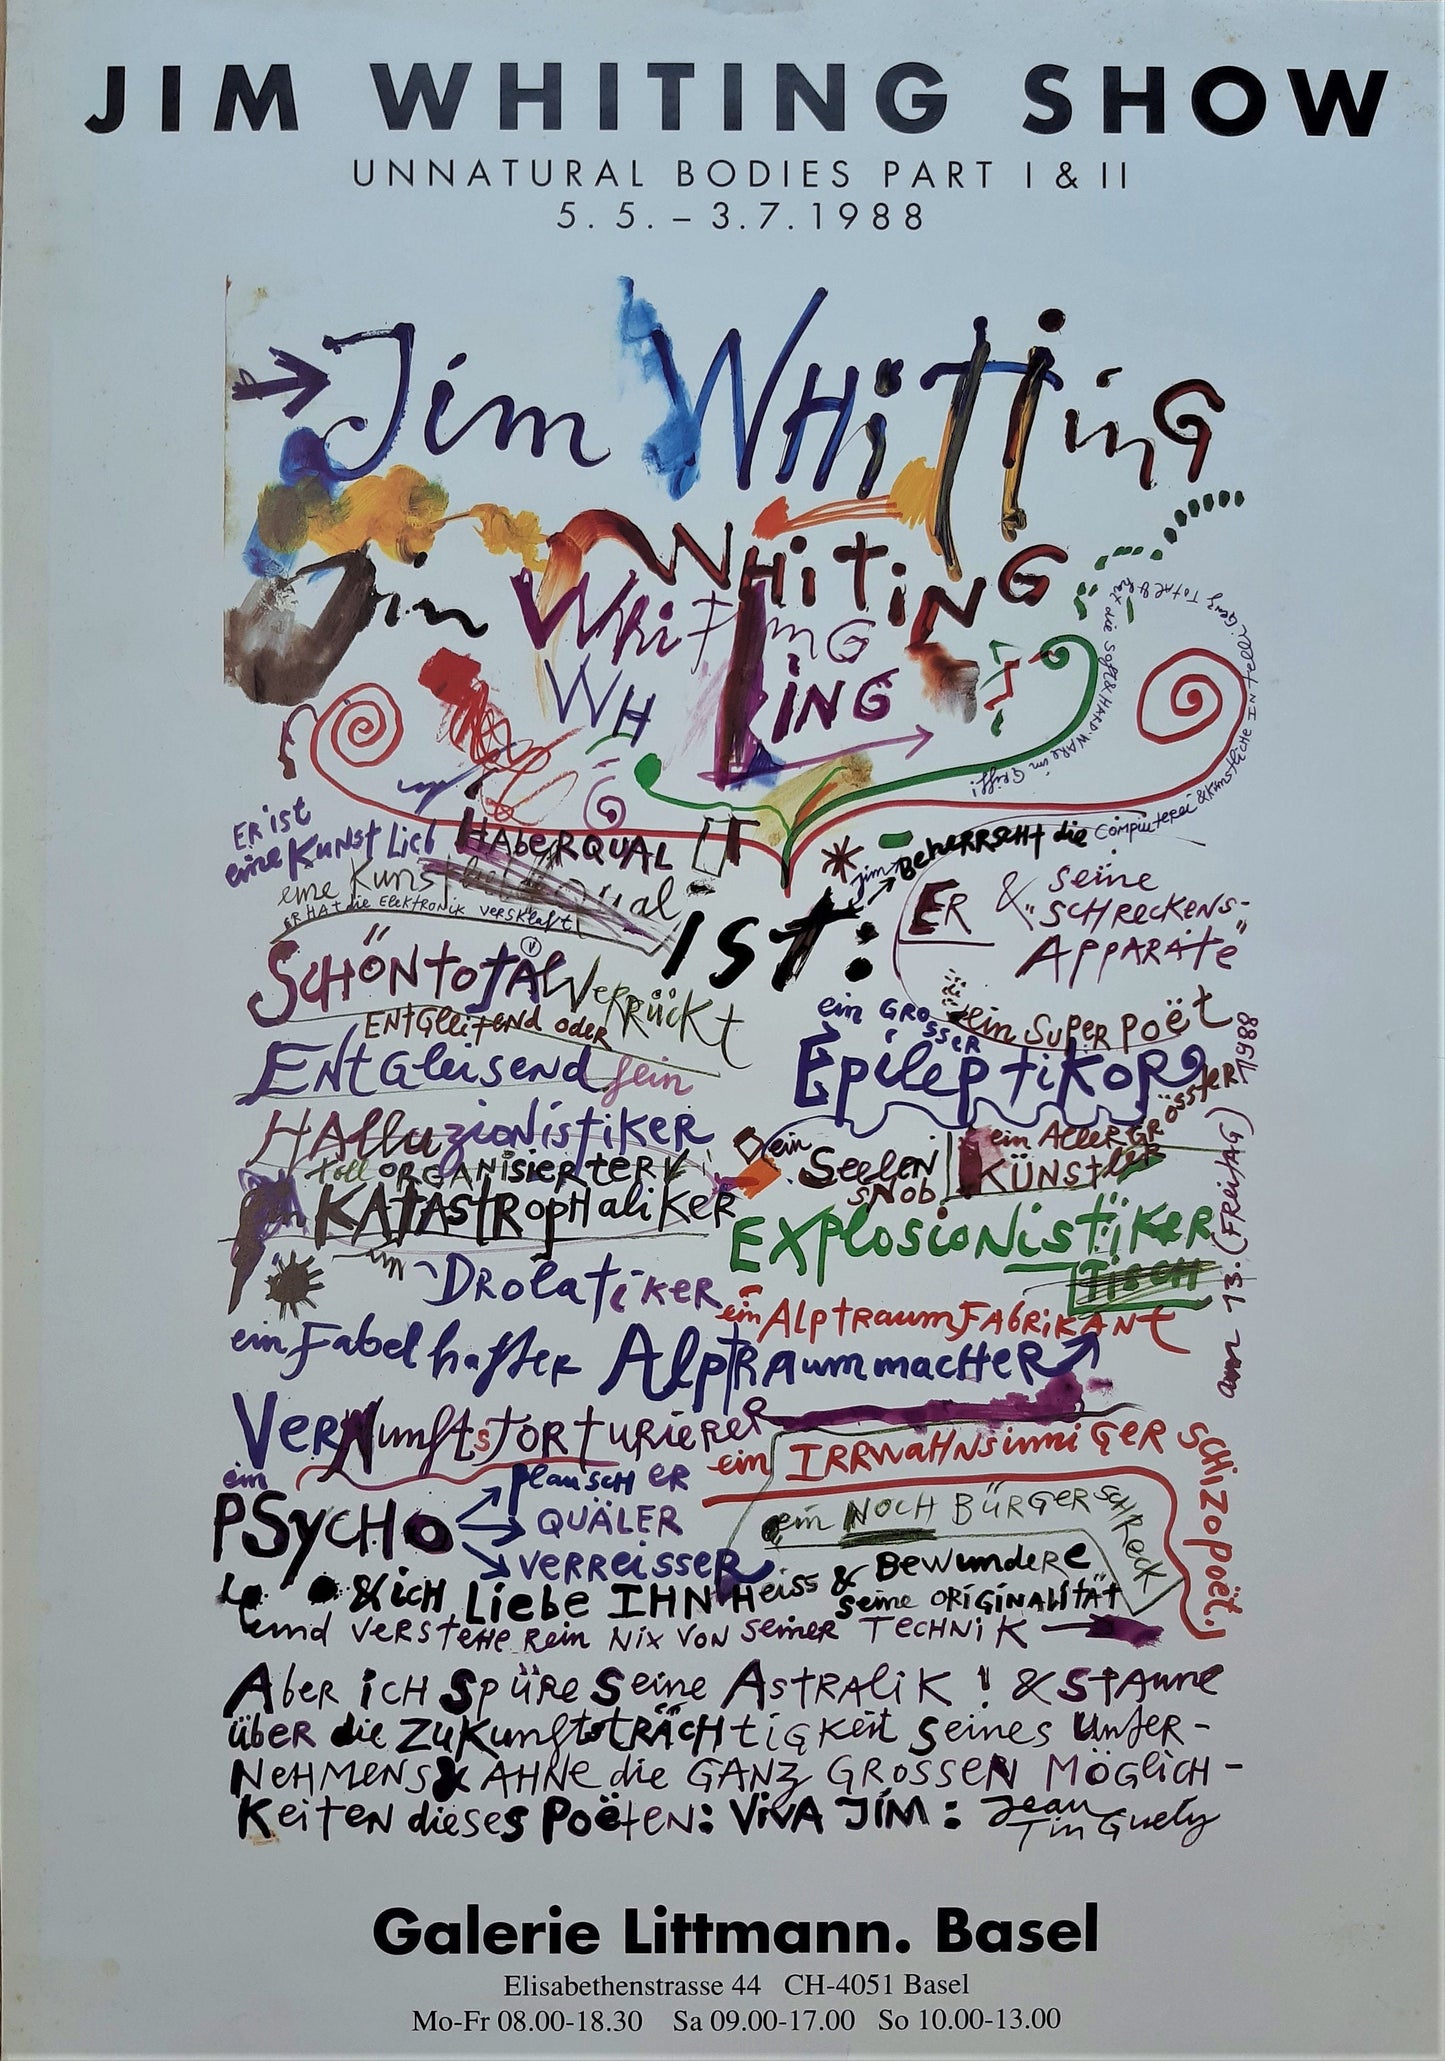 JIM WHITING SHOW
UNNATURAL BODIES PART I & II
5. 5. – 3.7.1988
Jim WHiTTinG
Jim WHiTiNG
WhiTinG
WH iNG
Ganz Total & hext die Soft & HARD WARE im Griff!
& Künstliche INTelli
ER ist
eine KUNST Lieb HABERQUAL
eine Kunst
ER HAT die ELEKTRONIK versklavt
IST:
Jim BEHERRSCHT die COMPUTEREI
ER & seine
"SCHRECKENS-
APPARATE"
SCHÖN TOTAL VerRückt
ENTGLEITEND ODER
ENTGLEISEND sein
HALLUZIONISTIKER
toll ORGANISIERTER
ein KATASTROPHALIKER
ein DROLATIKER
ein SUPER POËT
ein GROSSER
EPILEPTIKOR
ein Seelen
SNOB
ein ALLERGRÖSSTER
KÜNSTLER
EXPLOSIONISTIKER
TISCH
ein ALPTRAUMFABRIKANT
am 13. (FREITAG) 1988
ein Fabelhafter ALPTRAUMMACHER
VERNUNFTSTORTURIERER
ein IRRWAHNSINNIGER SCHIZOPOËT.
ein
PSYCHO
PLAUSCHER
QUÄLER
VERREISSER
ein NOCH BÜRGERSCHRECK
& ICH LIEBE IHN HEISS & BEWUNDERE
seine ORIGINALITÄT
und VERSTEHE REIN NIX VON SEINER TECHNIK
ABER ICH SPÜRE SEINE ASTRALIK ! & STAUNE
ÜBER die ZUKUNFTSTRÄCHTIGKEIT SEINES UNTER-
NEHMENS & AHNE die GANZ GROSSEN MÖGLICH-
KEITEN dieses POËTEN: VIVA JIM : Jean
Tinguely
Galerie Littmann. Basel
Elisabethenstrasse 44 CH-4051 Basel
Mo-Fr 08.00-18.30 Sa 09.00-17.00 So 10.00-13.00